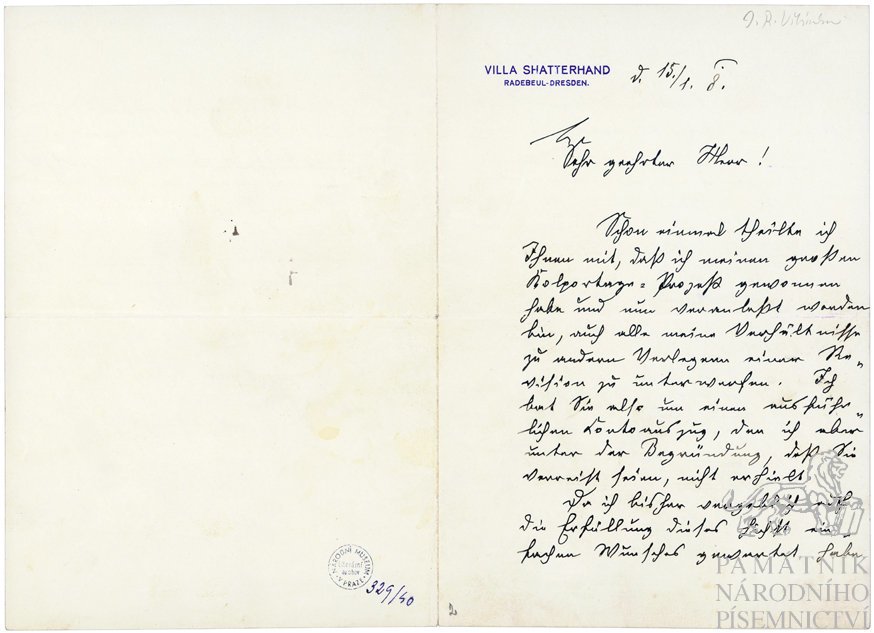 J. R. Vilímek
VILLA SHATTERHAND
RADEBEUL-DRESDEN.
d. 15./1. 8.
Sehr geehrter Herr!
Schon einmal theilte ich
Ihnen mit, daß ich meinen großen
Kolportage-Prozeß gewonnen
habe und nun veranlaßt worden
bin, auch alle meine Verhältnisse
zu andern Verlegern einer Re-
vision zu unterwerfen. Ich
bat Sie also um einen ausführ-
lichen Kontoauszug, den ich aber
unter der Begründung, daß Sie
verreist seien, nicht erhielt.
Da ich bisher vergeblich auf
die Erfüllung dieses höchst ein-
fachen Wunsches gewartet habe
NÁRODNÍ MUSEUM
V PRAZE
literární
archiv
329/40
2
PAMÁTNÍK
NÁRODNÍHO
PÍSEMNICTVÍ